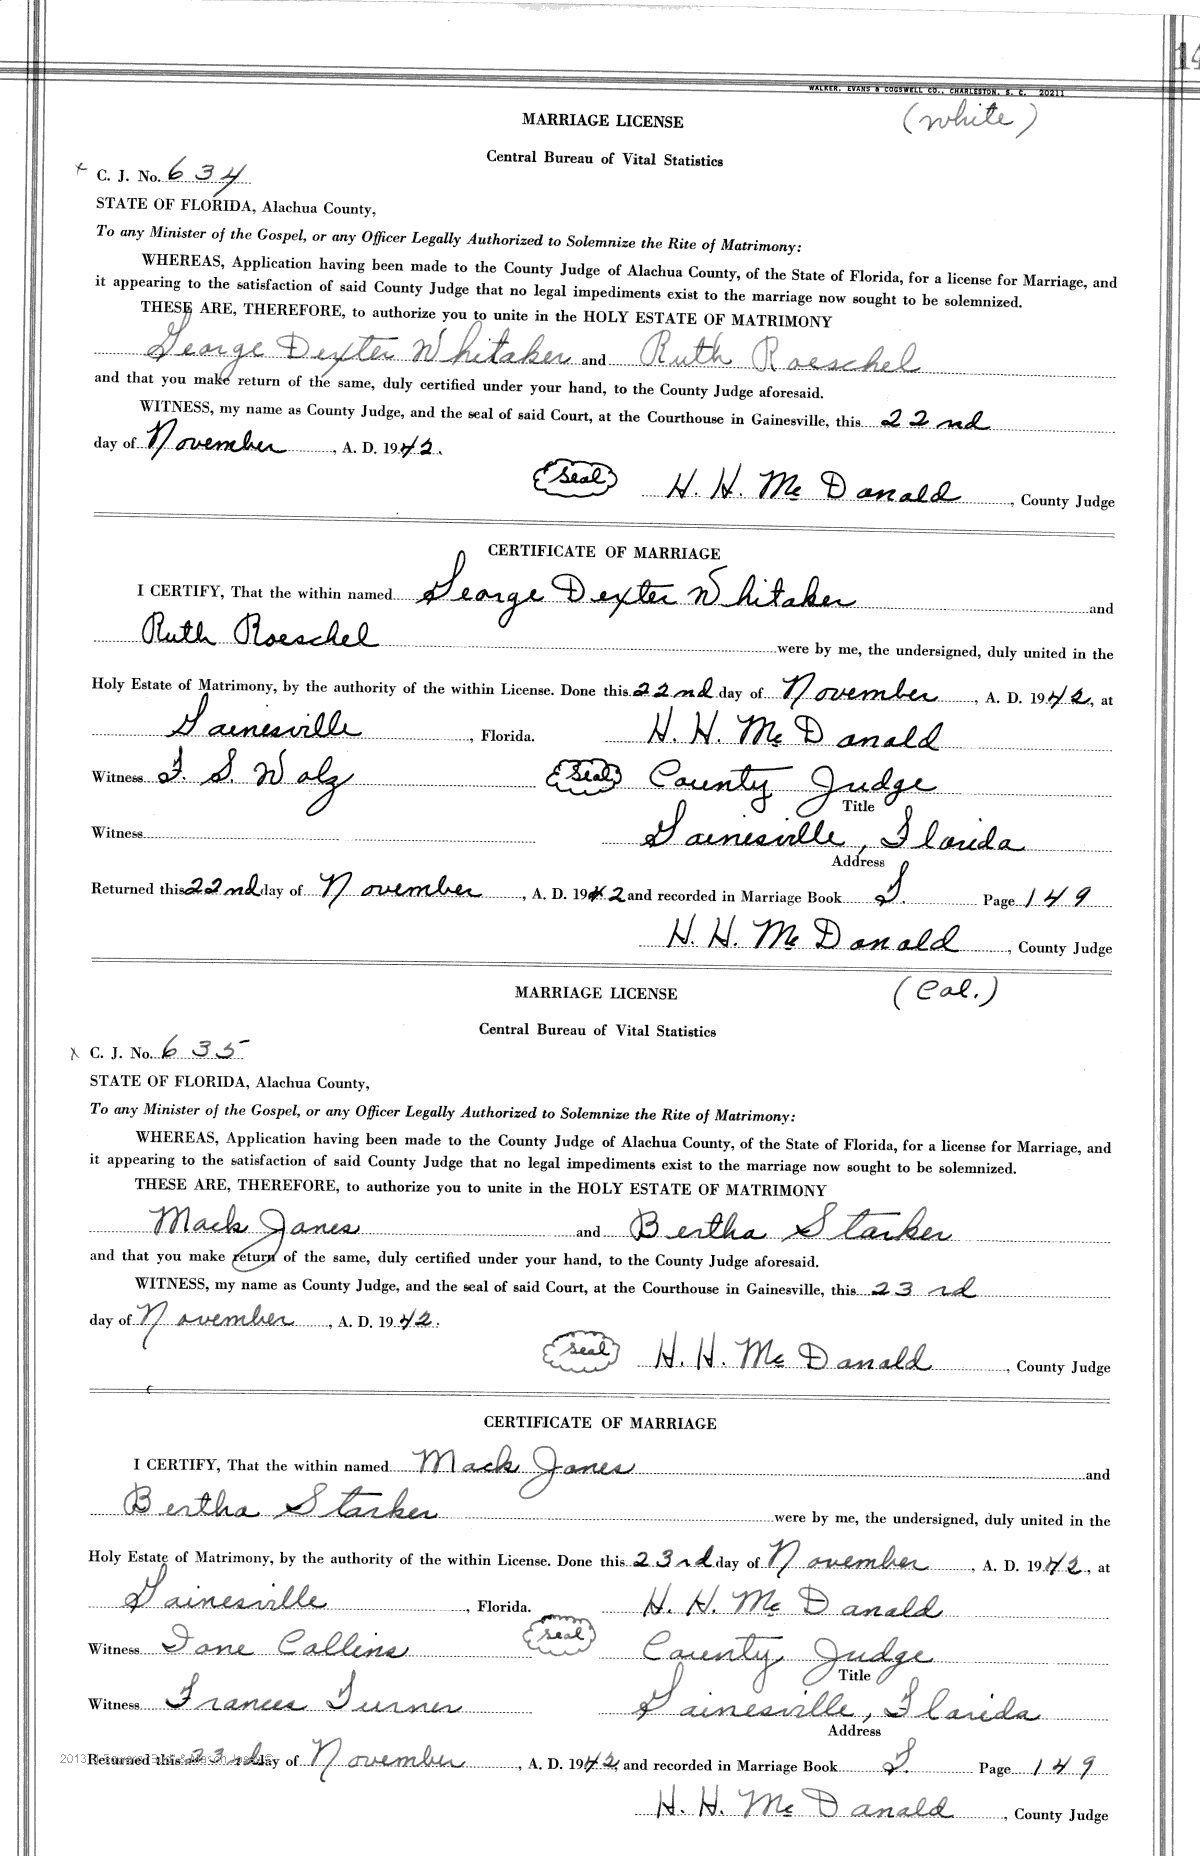 14
WALKER, EVANS & COGSWELL CO., CHARLESTON, S. C. 20211
MARRIAGE LICENSE (White)
Central Bureau of Vital Statistics
x C. J. No. 634
STATE OF FLORIDA, Alachua County,
To any Minister of the Gospel, or any Officer Legally Authorized to Solemnize the Rite of Matrimony:
WHEREAS, Application having been made to the County Judge of Alachua County, of the State of Florida, for a license for Marriage, and
it appearing to the satisfaction of said County Judge that no legal impediments exist to the marriage now sought to be solemnized.
THESE ARE, THEREFORE, to authorize you to unite in the HOLY ESTATE OF MATRIMONY
George Dexter Whitaker and Ruth Roeschel
and that you make return of the same, duly certified under your hand, to the County Judge aforesaid.
WITNESS, my name as County Judge, and the seal of said Court, at the Courthouse in Gainesville, this 22nd
day of November, A. D. 1942.
Seal H. H. McDonald, County Judge
CERTIFICATE OF MARRIAGE
I CERTIFY, That the within named George Dexter Whitaker and
Ruth Roeschel were by me, the undersigned, duly united in the
Holy Estate of Matrimony, by the authority of the within License. Done this 22nd day of November, A. D. 1942, at
Gainesville, Florida. H. H. McDonald
Witness F. S. Walz Seal County Judge
Title
Witness Gainesville, Florida
Address
Returned this 22nd day of November, A. D. 1942 and recorded in Marriage Book Page 149
H. H. McDonald, County Judge
MARRIAGE LICENSE (Col.)
Central Bureau of Vital Statistics
x C. J. No. 635
STATE OF FLORIDA, Alachua County,
To any Minister of the Gospel, or any Officer Legally Authorized to Solemnize the Rite of Matrimony:
WHEREAS, Application having been made to the County Judge of Alachua County, of the State of Florida, for a license for Marriage, and
it appearing to the satisfaction of said County Judge that no legal impediments exist to the marriage now sought to be solemnized.
THESE ARE, THEREFORE, to authorize you to unite in the HOLY ESTATE OF MATRIMONY
Mack Jones and Bertha Starker
and that you make return of the same, duly certified under your hand, to the County Judge aforesaid.
WITNESS, my name as County Judge, and the seal of said Court, at the Courthouse in Gainesville, this 23rd
day of November, A. D. 1942.
Seal H. H. McDonald, County Judge
CERTIFICATE OF MARRIAGE
I CERTIFY, That the within named Mack Jones and
Bertha Starker were by me, the undersigned, duly united in the
Holy Estate of Matrimony, by the authority of the within License. Done this 23rd day of November, A. D. 1942, at
Gainesville, Florida. H. H. McDonald
Witness Ione Collins Seal County Judge
Title
Witness Frances Turner Gainesville, Florida
Address
Returned this 23rd day of November, A. D. 1942 and recorded in Marriage Book Page 149
H. H. McDonald, County Judge